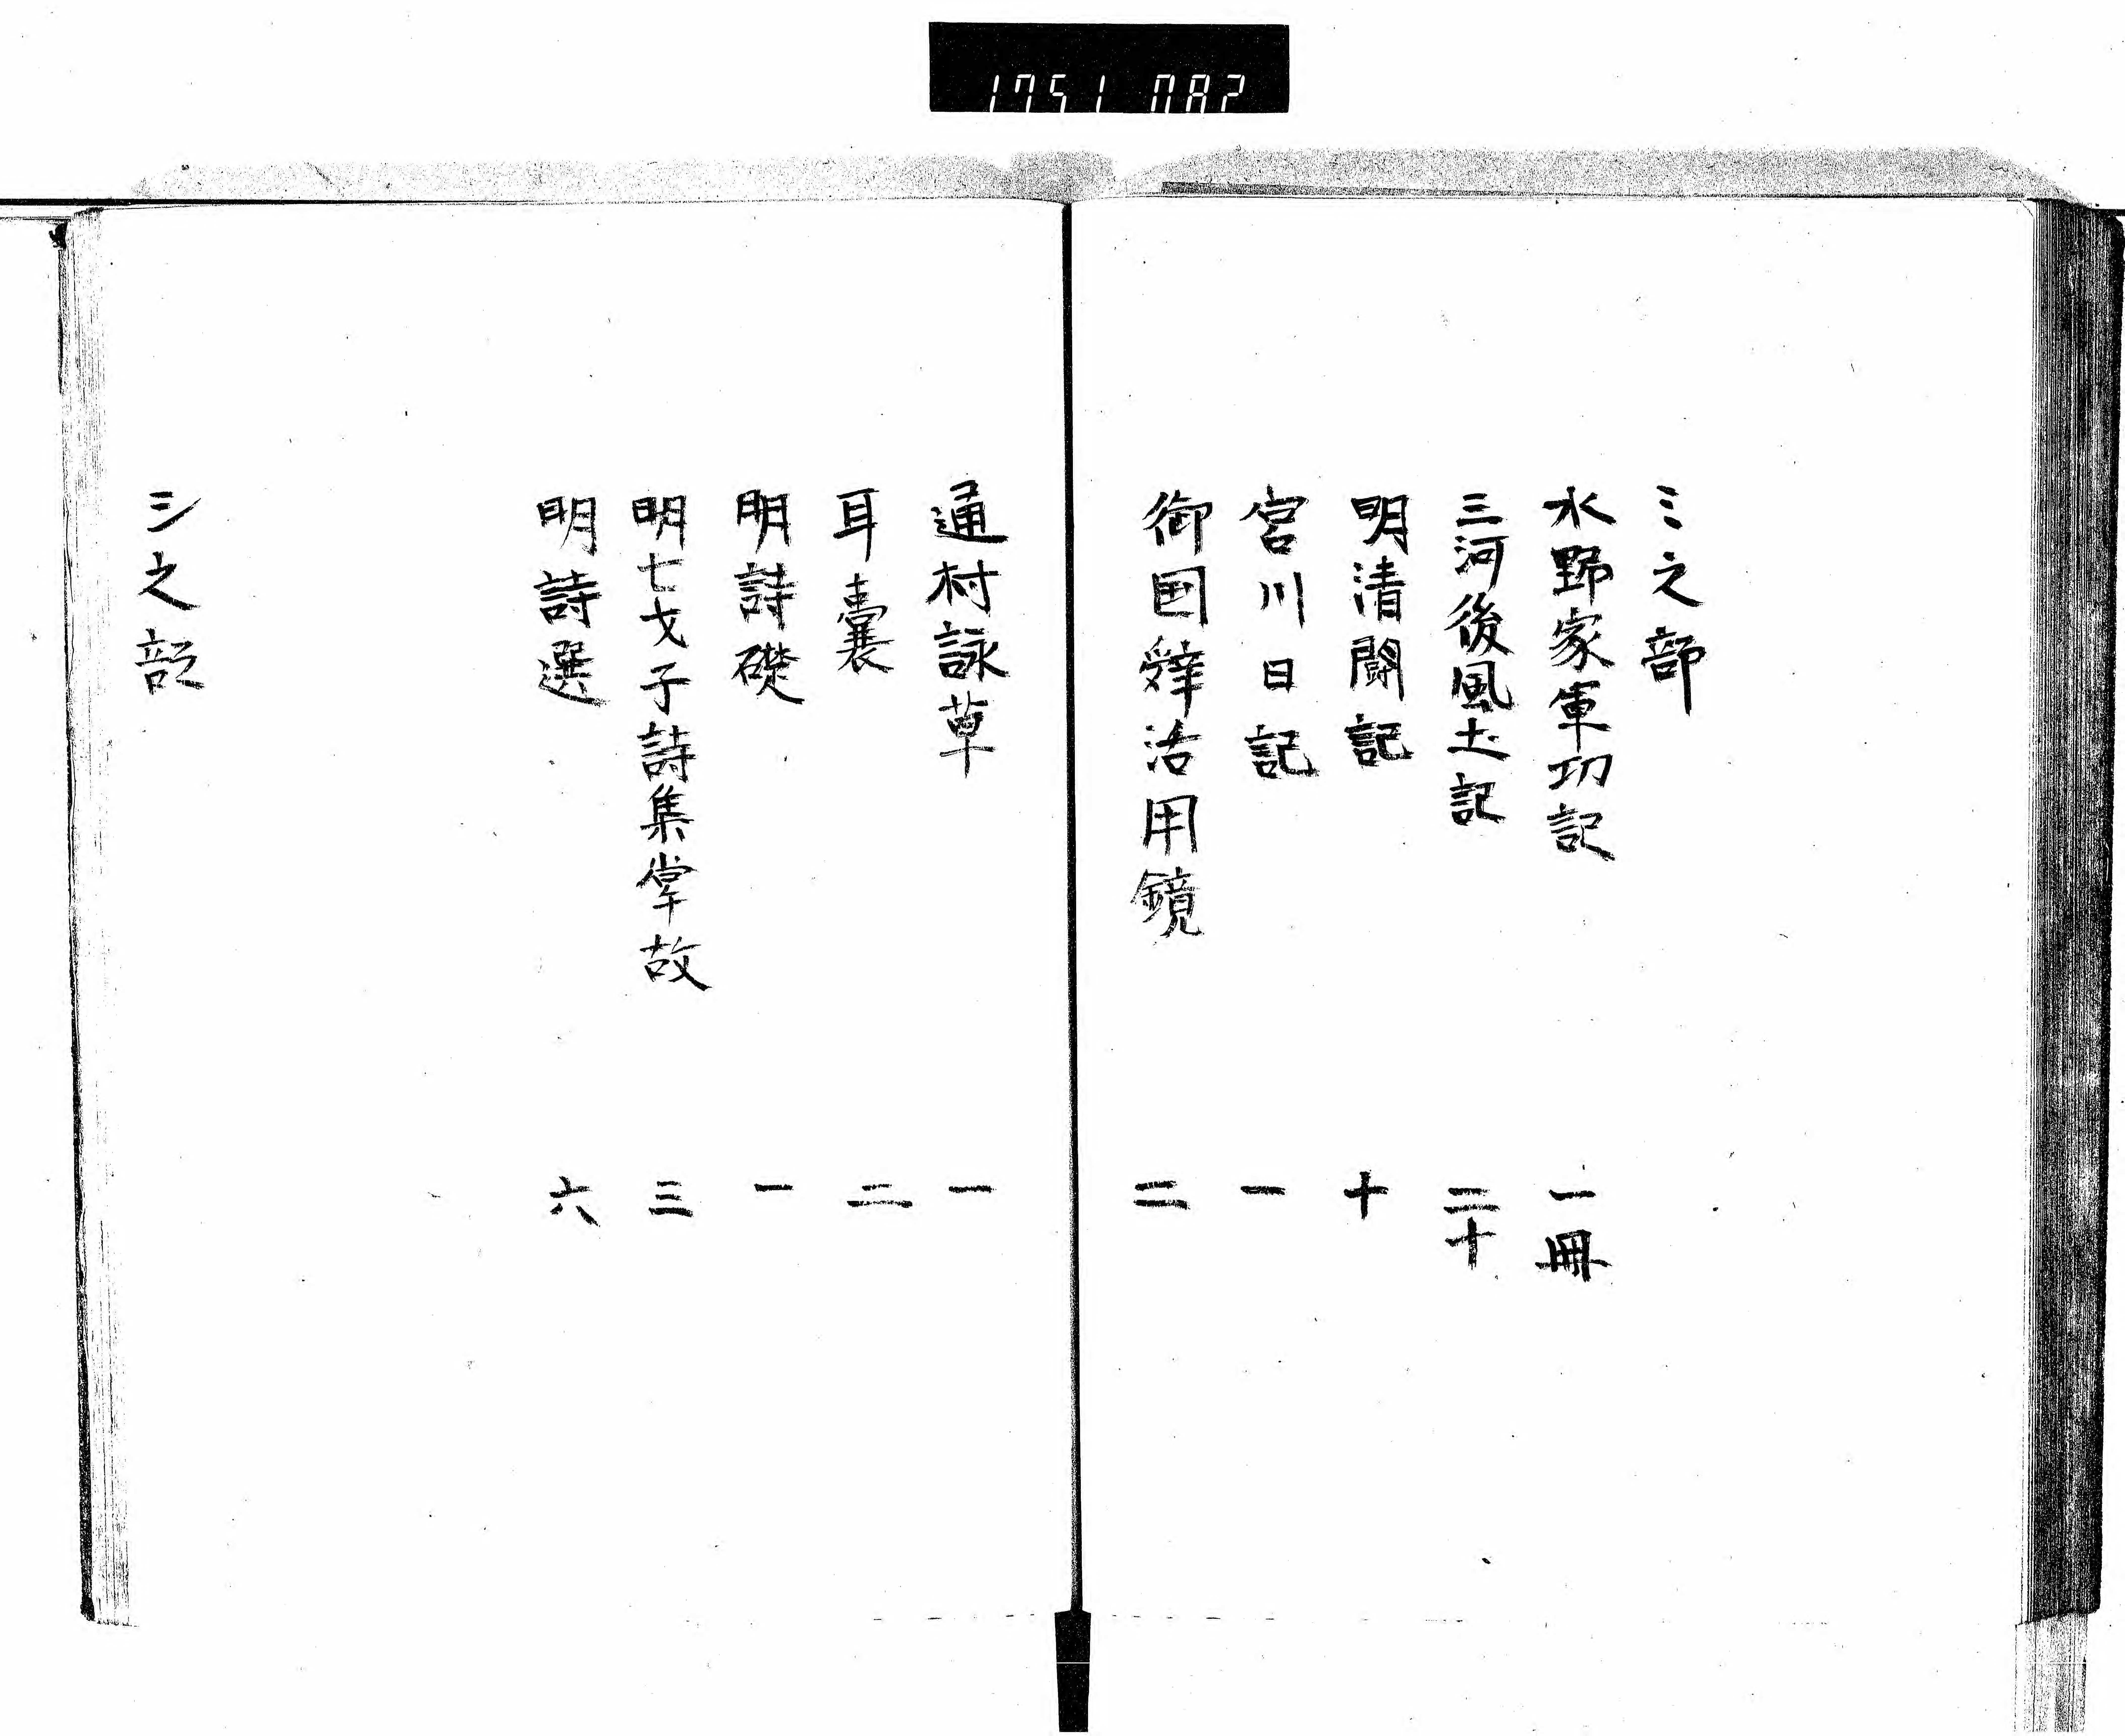 1751 082
ミ之部
水野家軍功記 一冊
三河後風土記 二十
明清闘記 十
宮川日記 一
御国辞活用鏡 二
通村詠草 一
耳嚢 二
明詩礎 一
明七才子詩集掌故 三
明詩選 六
シ之部